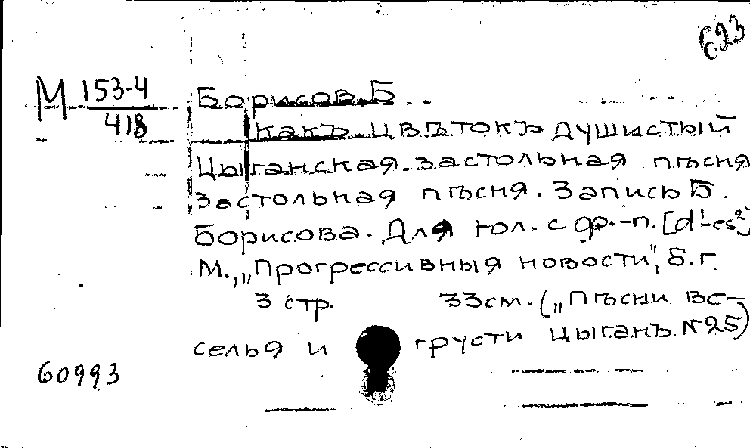 623
М 153-4
418
Борисов. Б
Какъ цвѣтокъ душистый
Цыганская. застольная пѣсня
Застольная пѣсня. Запись Б.
Борисова. Для гол. с фр.-п. [d¹-es²]
М., „Прогрессивныя новости", б.г.
3 стр. 33см. („Пѣсни ве-
селья и грусти цыганъ. № 25)
60993